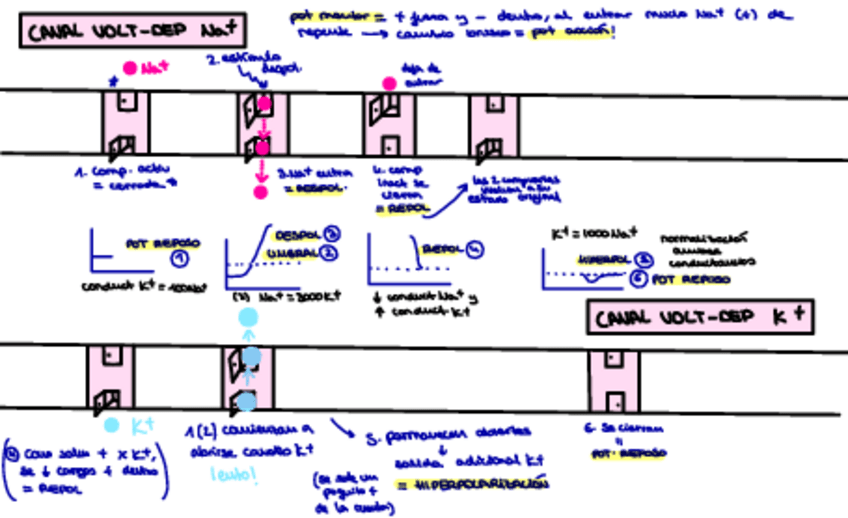 CANAL VOLT-DEP Na+
pot = + fuera y - dentro, al entrar mucho Na+ (+) de
repente → cambio brusco = pot acción!
Na+
2. estímulo
despol.
deja de
entrar
1. comp. activ
= cerrada *
3. Na+ entra
= DESPOL.
4. comp
inact se
cierra
= REPOL
las 2 compuertas
vuelven a su
estado original
POT REPOSO
1
conduct K+ = 100Na+
DESPOL 3
UMBRAL 2
Na+ = 5000 K+
REPOL 4
↓ conduct Na+ y
↑ conduct K+
K+ = 1000 Na+
normalización
ambas
conductancias
HIPERPOL
6 POT REPOSO
CANAL VOLT-DEP K+
K+
como salen + x K+,
se ↓ cargas + dentro
= REPOL
1(2) comienzan a
abrirse canales K+
lento!
5. permanecen abiertos
↓
salida adicional K+
= HIPERPOLARIZACIÓN
(se sale un
poquito +
de la cuenta)
6. Se cierran
=
POT. REPOSO